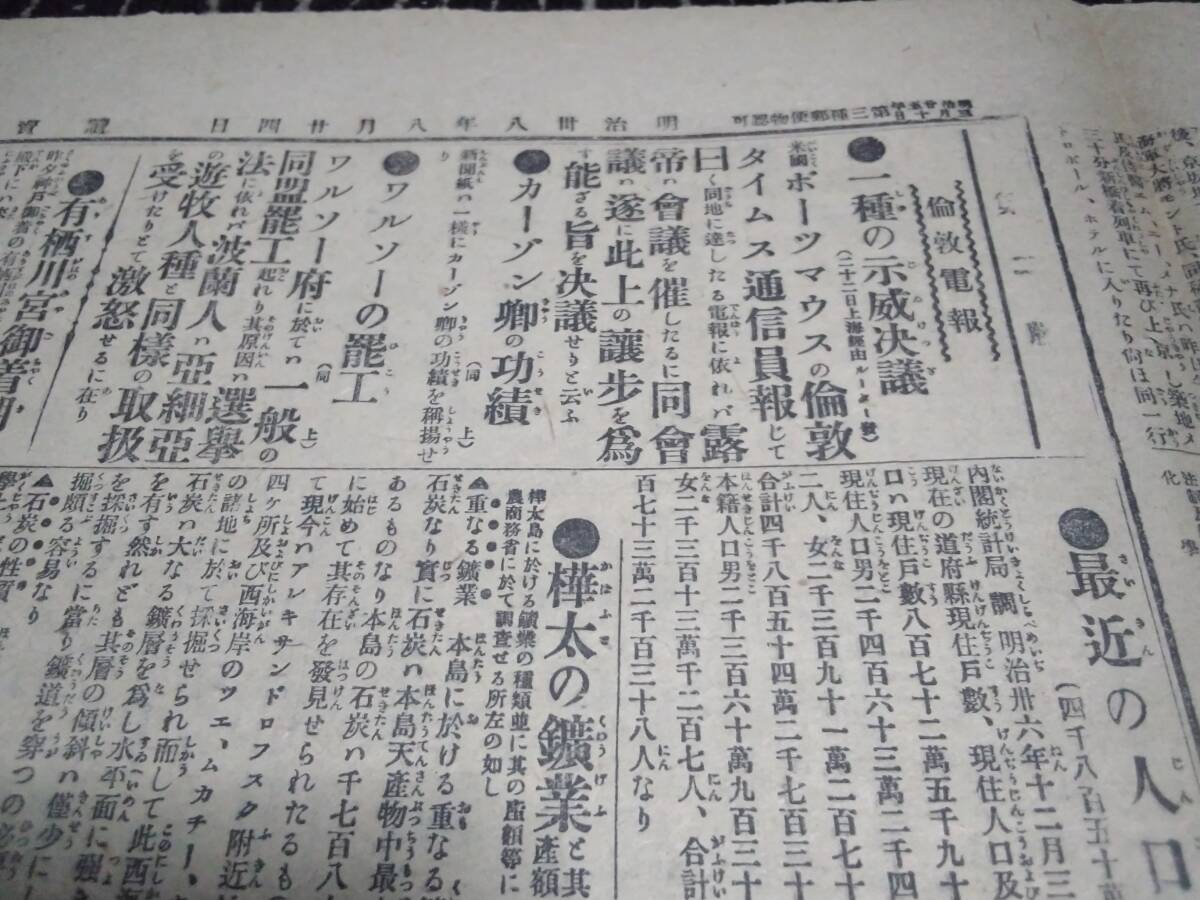 日四廿月八年八卅治明
可認物便郵種三第
倫敦電報
●一種の示威決議
(二十二日上海經由ルーター發)
米國ポーツマウスの倫敦
タイムス通信員報じて
曰く同地に達したる電報に依れバ露
帝の會議を催したるに同會
議ハ遂に此上の讓步を爲
す能ざる旨を決議せりと云ふ
●カーゾン卿の功績
(同上)
新聞紙ハ一樣にカーゾン卿の功績を稱揚せ
り
●ワルソーの罷工
(同上)
ワルソー府に於てハ一般の
同盟罷工起れり其原因ハ選舉
法に依れバ波蘭人ハ亞細亞
の遊牧人種と同樣の取扱
を受けたりとて激怒せるに在り
●有栖川宮御着
●最近の人口
內閣統計局調 明治卅六年十二月三
現在の道府縣現住戶數、現住人口及
口ハ現住戶數八百七十二萬五千九十
現住人口男二千四百六十三萬二千四
二人、女二千三百九十一萬二百七十
合計四千八百五十四萬二千七百三十
本籍人口男二千三百六十萬九百三十
女二千三百十三萬千二百七人、合計
百七十三萬二千百三十八人なり
●樺太の鑛業と其產額
樺太島に於ける鑛業の種類並に其の產額等に
農商務省に於て調査せる所左の如し
▲重なる鑛業 本島に於ける重なる
石炭なり實に石炭ハ本島天產物中最
あるものなり本島の石炭ハ千七百八
に始めて其存在を發見せられたるも
て現今ハアレキサンドロフスク附近
四ヶ所及び西海岸のツエ、ムカチー、
の諸地に於て採掘せられ而して此西
石炭ハ大なる鑛層を爲し水平面に
を有す然れども其層の傾斜ハ僅少に
を採掘するに當り鑛道を穿つの必
掘頗る容易なり
▲石炭の性質